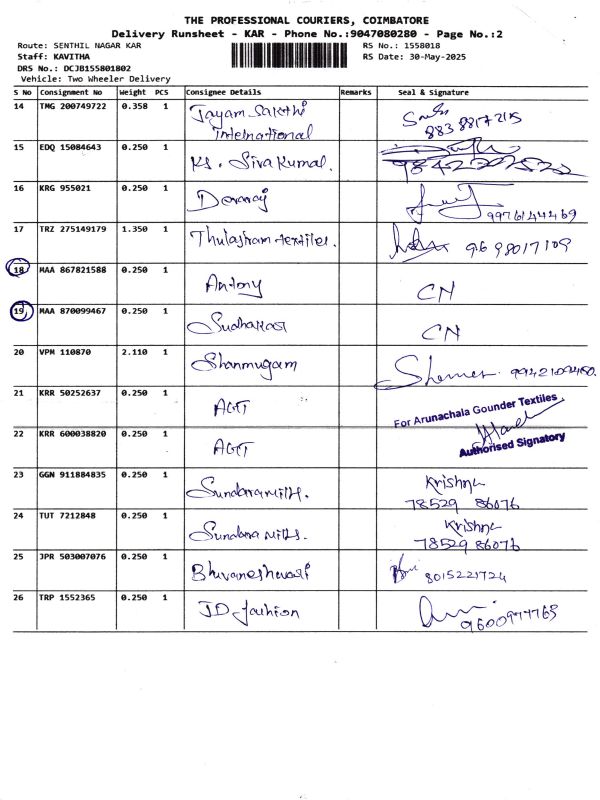 THE PROFESSIONAL COURIERS, COIMBATORE
Delivery Runsheet - KAR - Phone No.:9047080280 - Page No.:2
Route: SENTHIL NAGAR KAR RS No.: 1558018
Staff: KAVITHA RS Date: 30-May-2025
DRS No.: DCJB155801802
Vehicle: Two Wheeler Delivery
S No Consignment No Weight PCS Consignee Details Remarks Seal & Signature
14 TMG 200749722 0.358 1 Jayam Sakthi
International
15 EDQ 15084643 0.250 1 KS. Sivakumal.
16 KRG 955021 0.250 1 Devaraj
9976144469
17 TRZ 275149179 1.350 1 Thulasiram textiles. 9698017109
18 MAA 867821588 0.250 1 Antony CN
19 MAA 870099467 0.250 1 Sudhakar CN
20 VPM 110870 2.110 1 Shanmugam
21 KRR 50252637 0.250 1 AGT For Arunachala Gounder Textiles
22 KRR 600038820 0.250 1 AGT Authorised Signatory
23 GGN 911884835 0.250 1 Sundara mills. Krishna
78529 86076
24 TUT 7212848 0.250 1 Sundara mills. Krishna
78529 86076
25 JPR 503007076 0.250 1 Bhuvaneshwari 8015221724
26 TRP 1552365 0.250 1 JD fashion